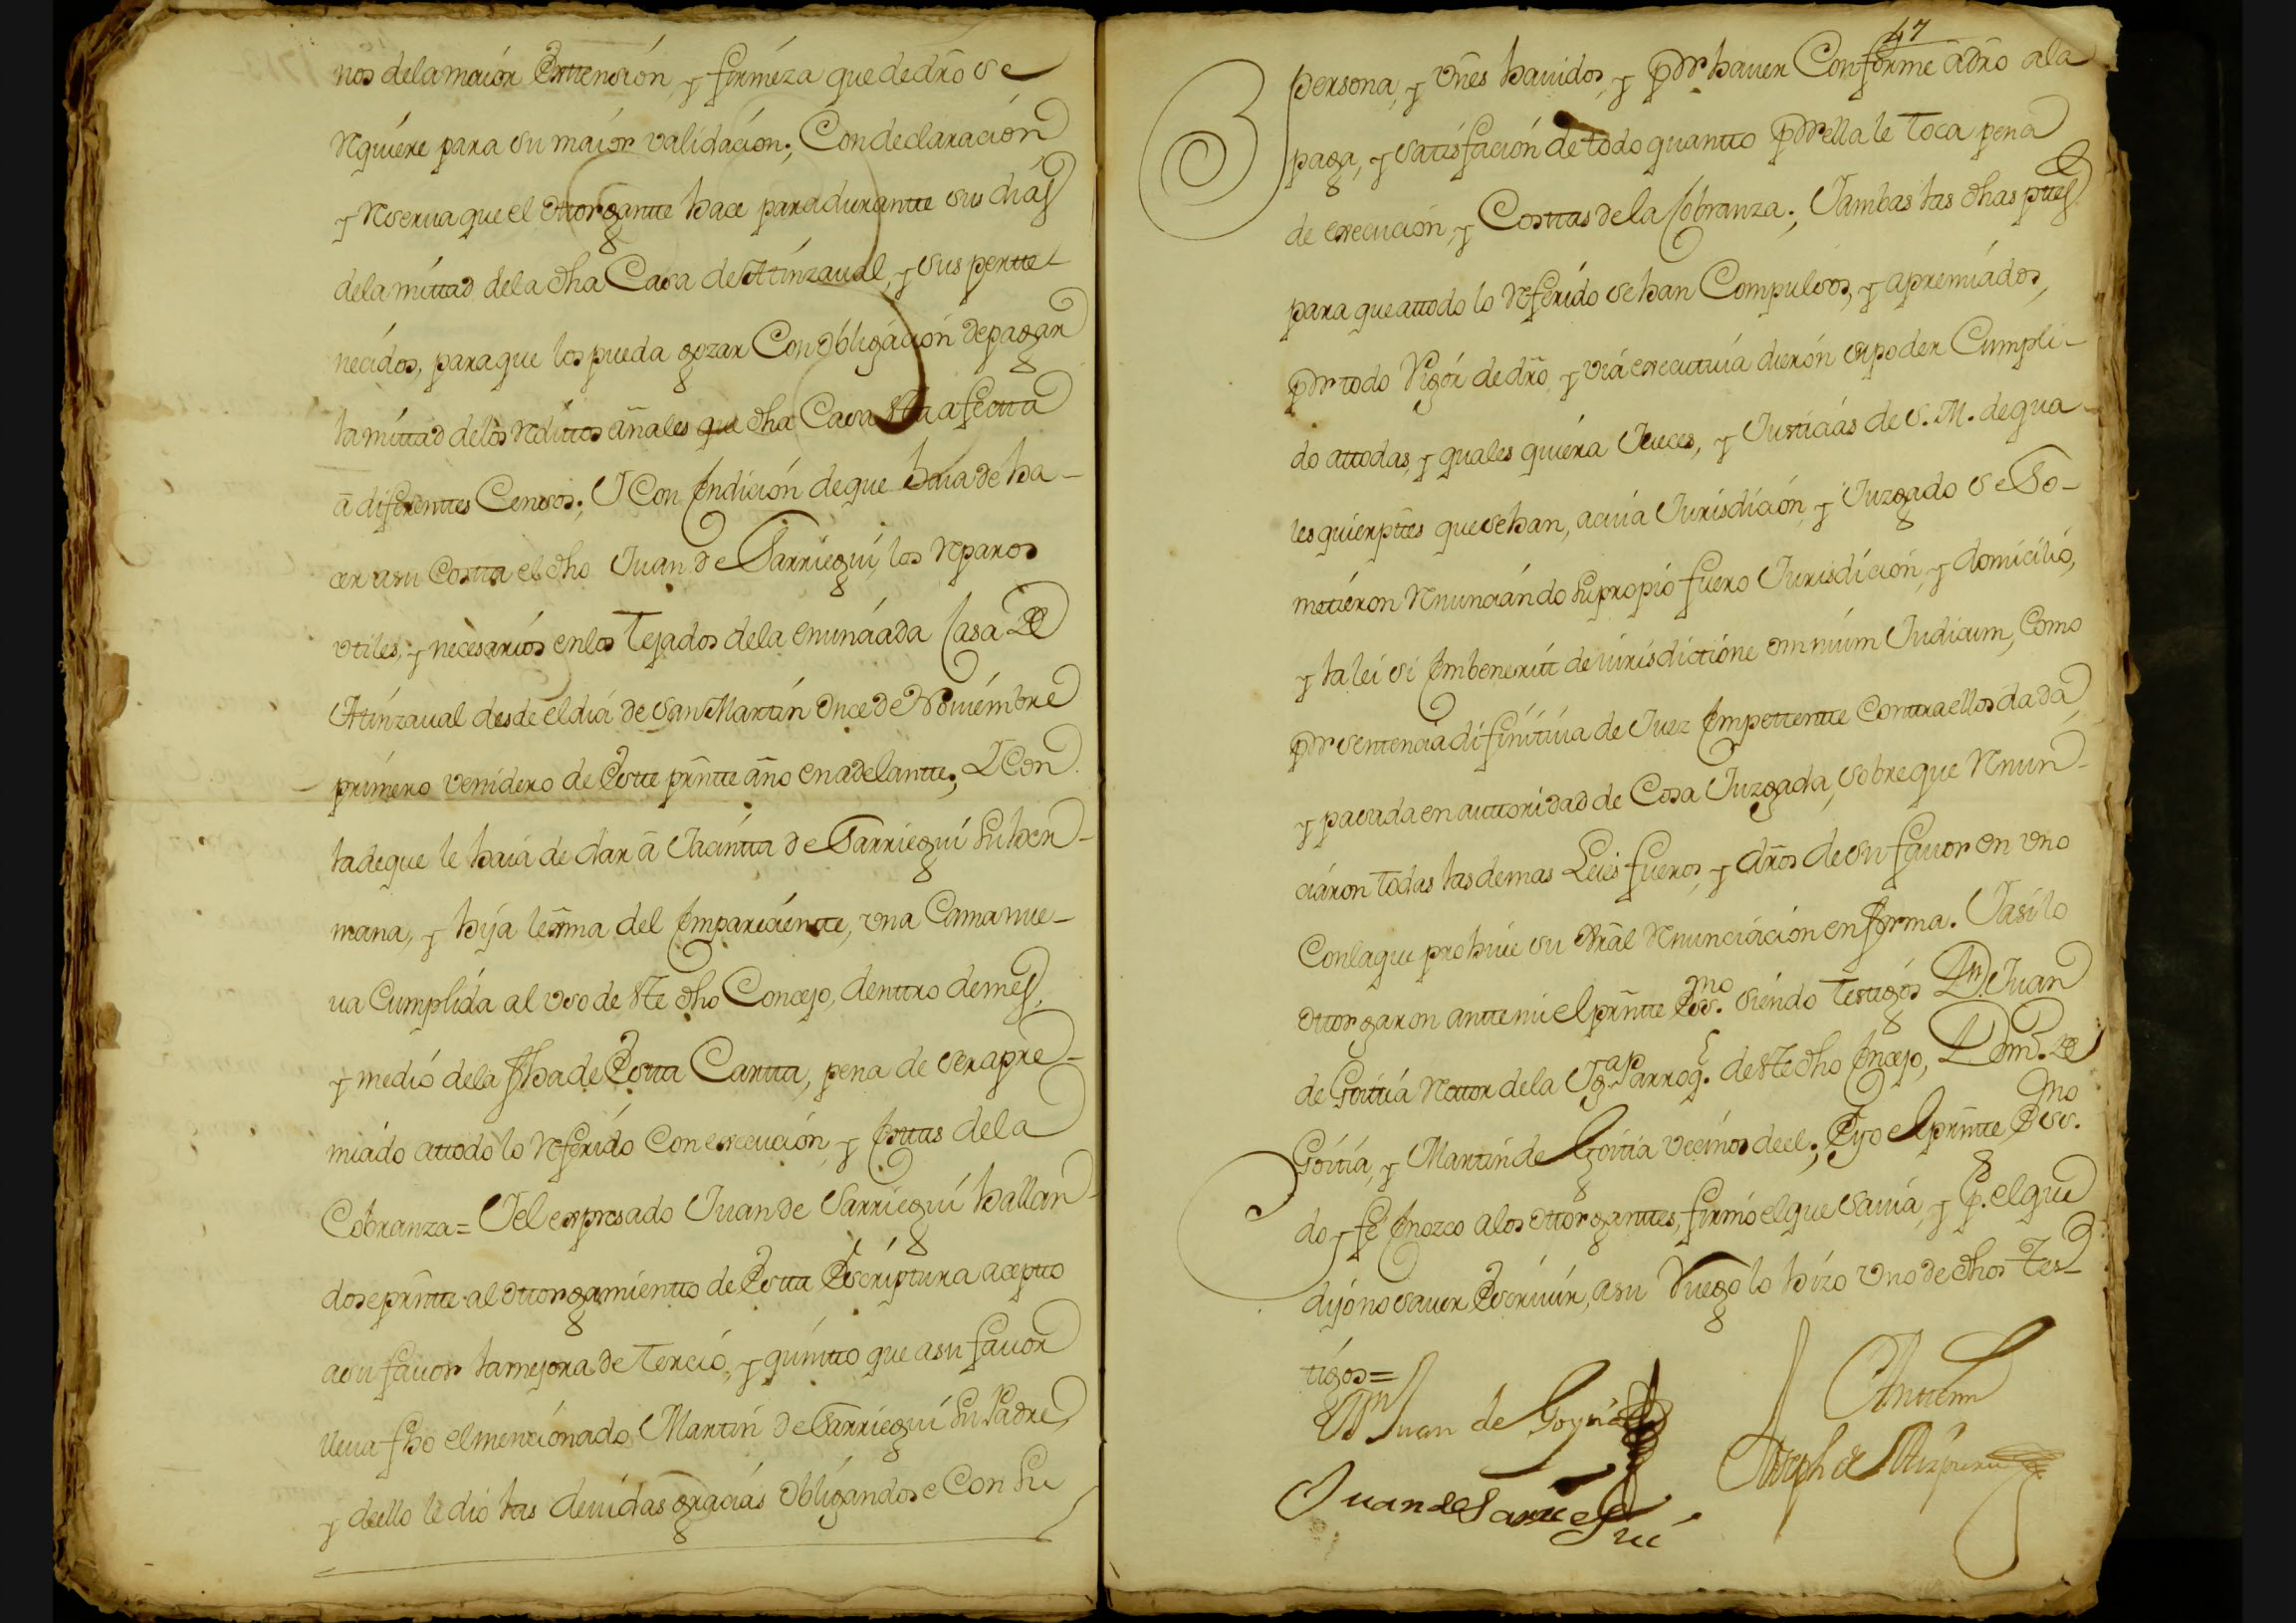 nos dela maior Exttension, y firmeza que de dro se
Rquiere para su maior validacion; Con declaracion
y Rserua que el Ottorgantte hace para durantte sus dias
dela mittad dela dha Casa de Atinzaual, y sus pertte-
necidos, para que los pueda gozar Con obligacion de pagar
la mittad delos Rdittos añales que dha Casa stta afectta
a diferenttes Censos; Y Con Condicion de que haia de ha-
cer a su Costta el dho Juan de Sarriegui, los Rparos
utiles, y necesarios enlos Tejados dela enunciada Casa de
Atinzaual desde el dia de San Martin once de Nouiembre
primero venidero de Estte prntte año en adelantte; Y Con
la de que le haia de dar a Jacintta de Sarriegui su her-
mana, y hija lexma del Compareciente, una Cama nue-
ua Cumplida al uso de ste dho Concejo, denttro de mes,
y medio dela fha de Estta Cartta, pena de ser apre-
miado attodo lo Rferido Con execucion, y Costtas dela
Cobranza = Y el expresado Juan de Sarriegui hallan-
dose prntte al ottorgamientto de Estta Escriptura aceptto
a su fauor la mejora de Tercio, y quintto que a su fauor
lleua fho el mencionado Martin de Sarriegui su Padre,
y dello le dio las deuidas gracias obligandose Con su
47
persona, y vnes hauidos, y por hauer Conforme a dro ala
paga, y satisfacion de todo quantto por ella le toca pena
de execucion, y Costtas dela Cobranza; Y ambas las dhas pttes
para que attodo lo Rferido sehan Compulsos, y apremiados,
por todo Rigor de dro, y via executiua dieron su poder Cumpli-
do attodas, y quales quiera Jueces, y Justicias de S. M. de qua-
les quier pttes que sehan, acuia Jurisdicion, y Juzgado se So-
mettieron Rnunciando su propio fuero Jurisdicion, y domicilio,
y la lei si Combeneritt de iurisdictione omnium Judicum, Como
por sentencia difinitiua de Juez Compettentte Conttra ellos dada,
y pasada en auttoridad de Cosa Juzgada, sobre que Rnun-
ciaron todas las demas Leies fueros, y dros de su fauor en uno
Con la que prohiue su Gral Rnunciacion en forma. Y asi lo
ottorgaron antte mi el prntte Essno. siendo Testigos Dn. Juan
de Goittia Rector dela Ygª Parroql. de ste dho Concejo, Domº. de
Goitia, y Martin de Goitia vecinos de el; E yo el prntte Essno.
doy fe Conozco alos ottorganttes, firmo el que sauia, y p. el que
dijo no sauer Escriuir, a su Ruego lo hizo uno de dhos Tes-
tigos =
Dn Juan de Goytia
Juan de Sarriegui
Antte mi
Joseph de Aizpuru